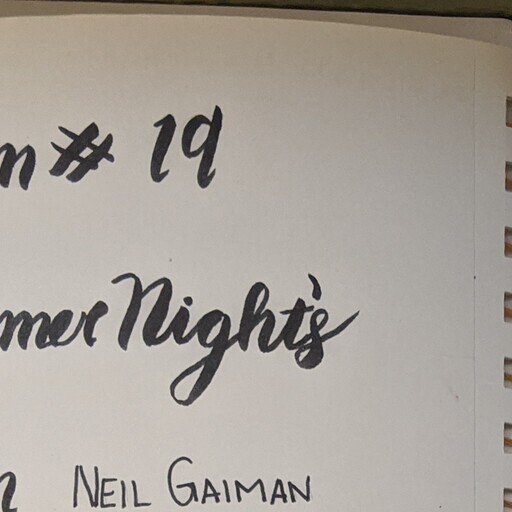 n # 19
mer Night's
n NEIL GAIMAN